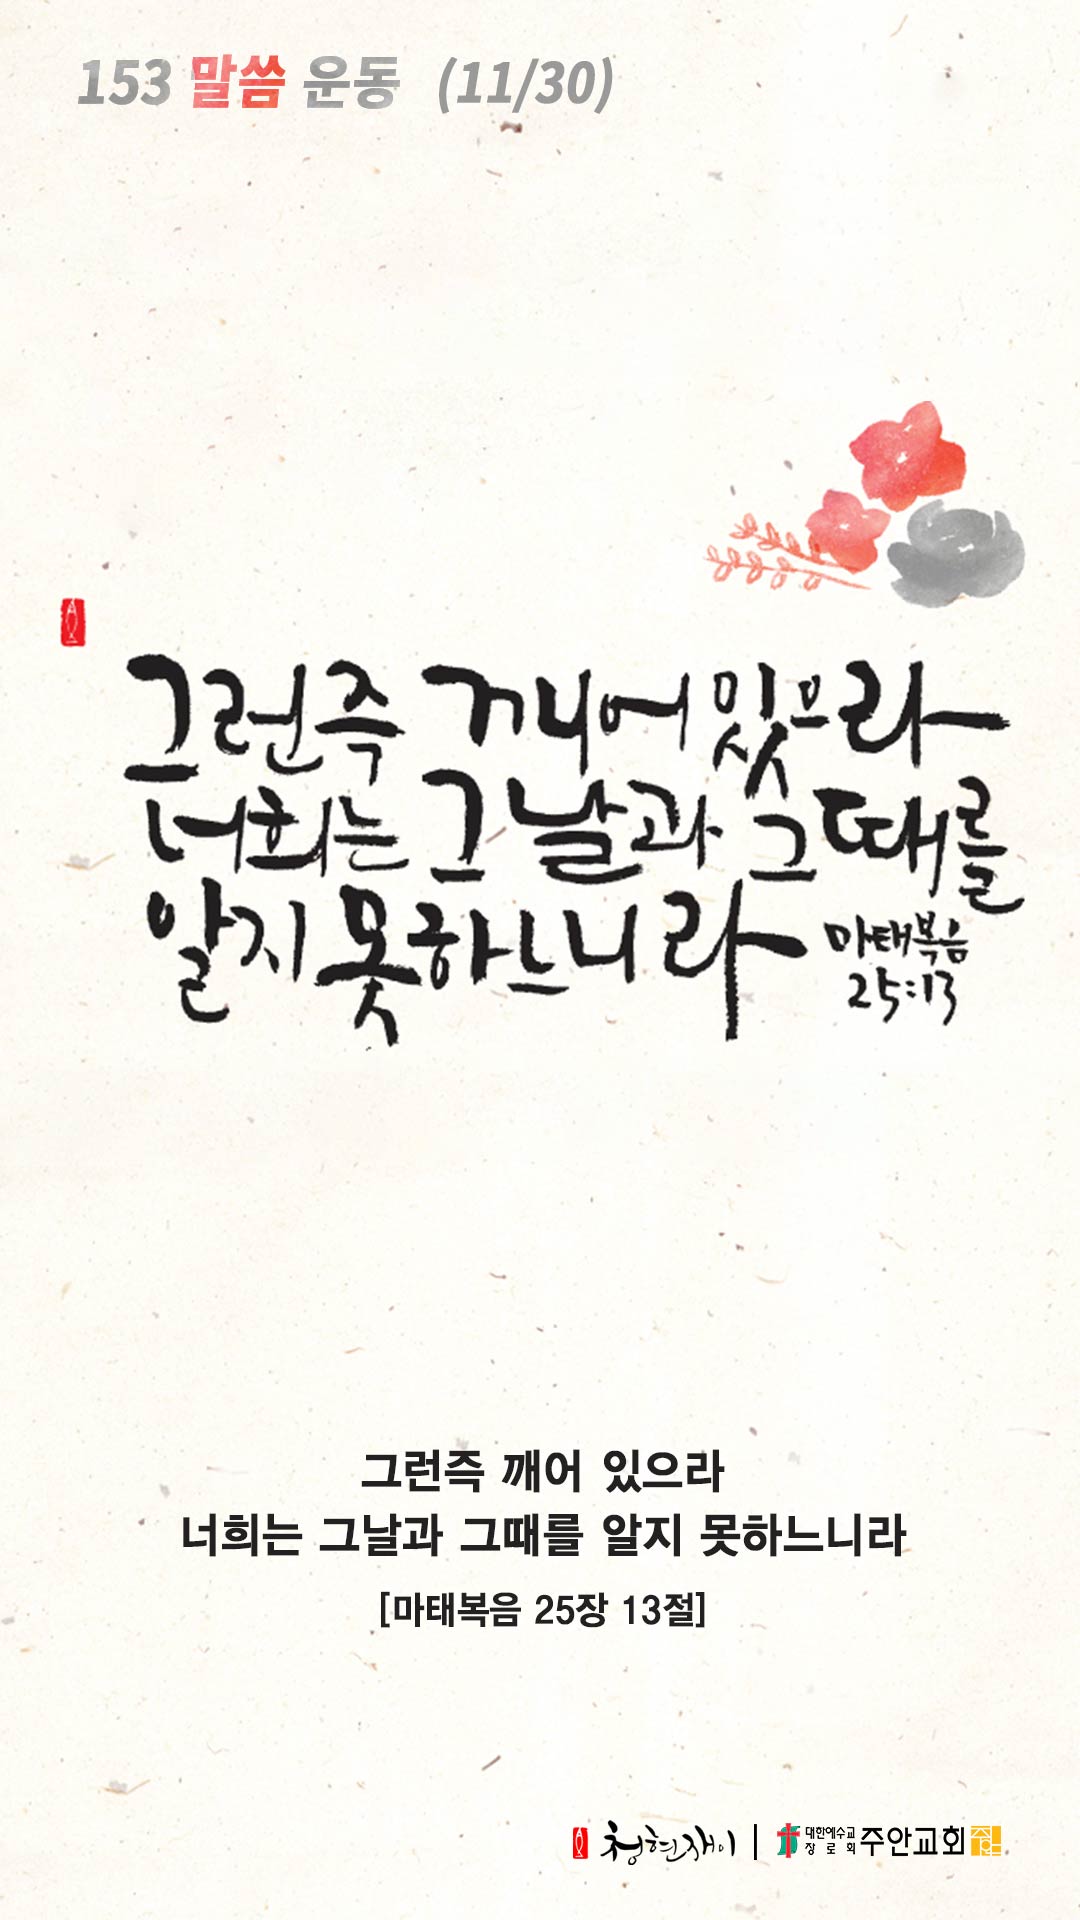 153 말씀 운동 (11/30)
그런즉 깨어 있으라
너희는 그날과 그때를
알지 못하느니라
마태복음
25:13
그런즉 깨어 있으라
너희는 그날과 그때를 알지 못하느니라
[마태복음 25장 13절]
청현재이 | 대한예수교 장로회 주안교회